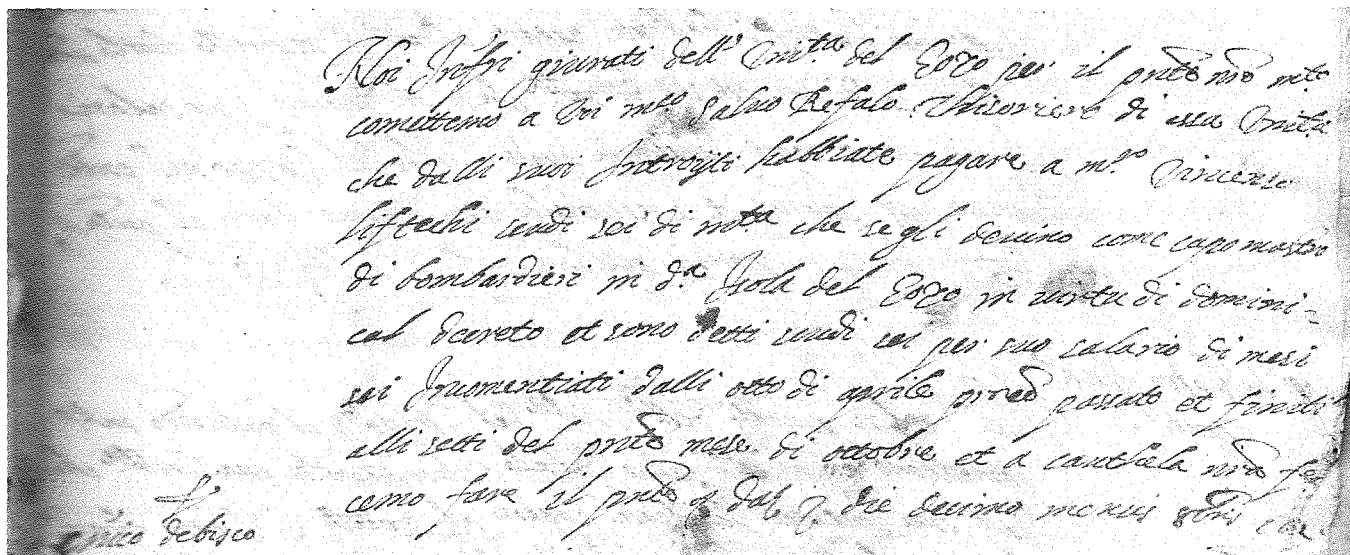 Noi Infri giurati dell' Unita del Gozo per il pnte nro mto
comettemo a Voi mro Salvo Refalo Thisoriero di essa Unita
che dalli suoi Introyti habbiate pagare a mro Vincenso
liftechi scudi sei di mta che se gli devino come capo mastro
di bombardieri in da Isola del Gozo in virtu di domini=
cal decreto et sono detti scudi sei per suo salario di mesi
sei Incomentiati dalli otto di aprile passato et finiti
alli setti del pnte mese di ottobre et a cauthela nra fe
cemo fare il pnte dat die decimo mensis 8bris
debisco